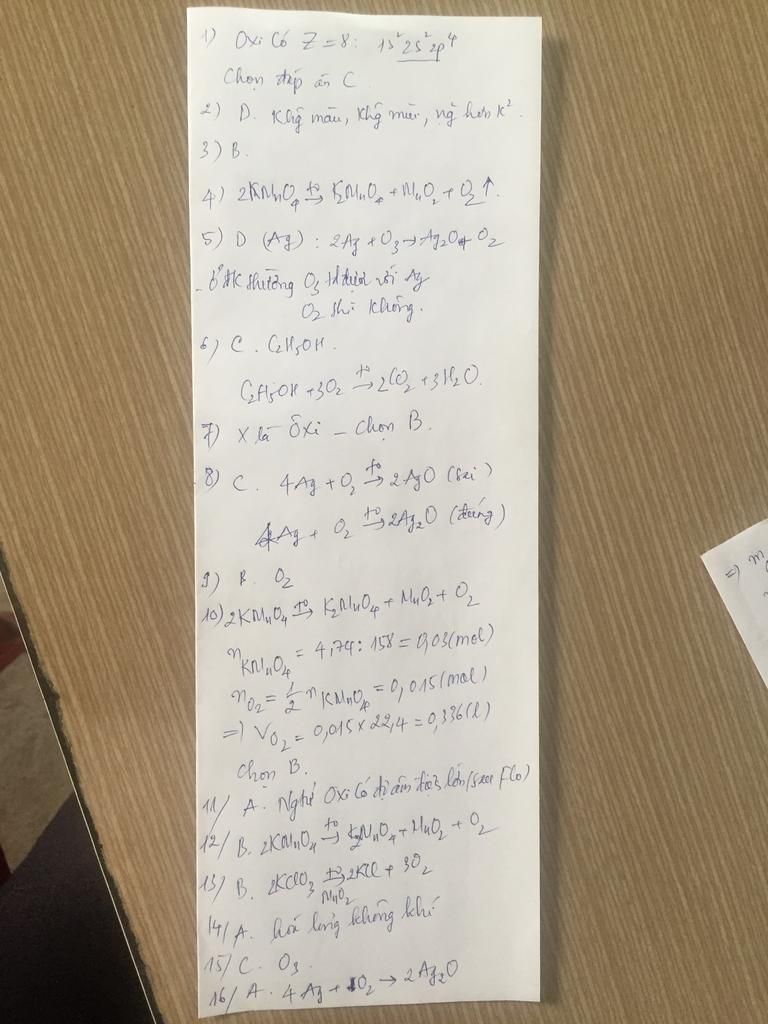 1) Oxi có Z = 8: 1s² 2s² 2p⁴
Chọn đáp án C
2) D. Khg màu, khg mùi, nặg hơn k².
3) B.
4) 2KMnO₄ →(t°) K₂MnO₄ + MnO₂ + O₂ ↑.
5) D (Ag) : 2Ag + O₃ → Ag₂O + O₂
- ở đk thường O₃ td được với Ag
O₂ thì không.
6) C. C₂H₅OH.
C₂H₅OH + 3O₂ →(t°) 2CO₂ + 3H₂O.
7) X là Ôxi – chọn B.
8) C. 4Ag + O₂ →(t°) 2AgO (sai)
4Ag + O₂ →(t°) 2Ag₂O (đúng)
9) B. O₂
10) 2KMnO₄ →(t°) K₂MnO₄ + MnO₂ + O₂
n KMnO₄ = 4,74 : 158 = 0,03 (mol)
n O₂ = 1/2 n KMnO₄ = 0,015 (mol)
=) V O₂ = 0,015 × 22,4 = 0,336 (l)
Chọn B.
11/ A. Ngtử Oxi có độ âm điện lớn (sau Flo)
12/ B. 2KMnO₄ →(t°) K₂MnO₄ + MnO₂ + O₂
13/ B. 2KClO₃ →(t°, MnO₂) 2KCl + 3O₂
14/ A. hoá lỏng không khí
15/ C. O₃.
16/ A. 4Ag + O₂ → 2Ag₂O
=) m